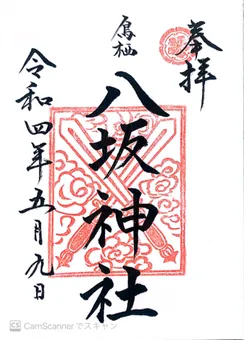 奉拝
鳥栖
八坂神社
令和四年五月九日
CS CamScannerでスキャン